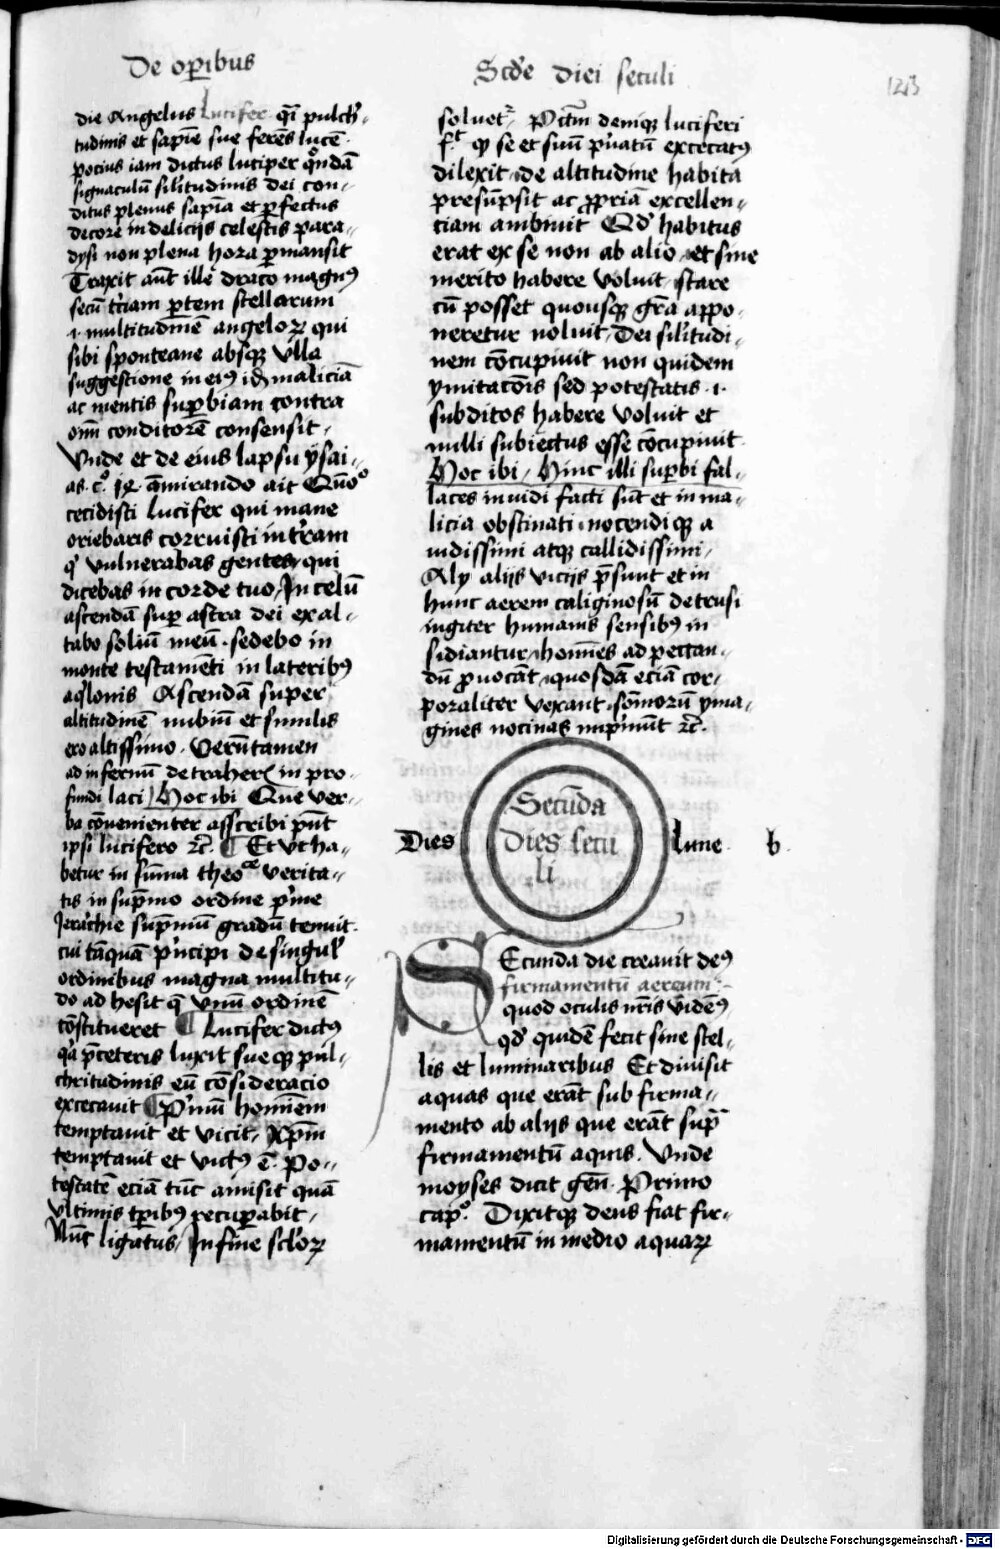 De op̲ibus
Scd̓e diei seculi
123
die Angelus Lucifer qͥ pulchͥ-
tudinis et sapiē sue ferēs lucē
pocius iam dictus luciper qn̄dā
signaculū silitudinis dei con-
ditus plenus sapīa et p̲fectus
decore in delicijs celestis para-
dysi non plena hora p̲mansit
Traxit aūt ille draco magnꝰ
secū tͥciam p̲tem stellarum
.i. multitudinē angeloꝝ qui
sibi sponteane absqꝫ vlla
suggestione in eiꝰ maliciā
ac mentis sup̲biam contra
om̄ conditorē consensit.
Vnde et de eius lapsu ysai-
as. cͦ. āmirando ait Quōͦ
cecidisti Lucifer qui mane
oriebaris corruisti in tr̓am
qͥ vulnerabas gentes, qui
dicebas in corde tuo, In celū
ascendā sup̲ astra dei exal-
tabo soliū meū. sedebo in
monte testamēti in lateribꝰ
aqͥlonis Ascendā super
altitudinē nubiū et similis
ero altissimo. Verūtamen
ad infernū detraherͥ in pro-
fundi laci, Hoc ibi Que ver-
ba cōuenienter asscribi pn̄t
ipsi lucifero ⁊c̄. ¶ Et vt ha-
betur in sūma theoᶜᵉ verita-
tis in sup̄mo ordine pͥme
Jerar̓chie sup̄mū gradū tenuit.
cui tāquā pͥncipi de singulͥ
ordinibus magna multitu-
do adhesit qͣ vnū ordinē
cōstitueret ¶ Lucifer dictꝰ
qͥa p̄ceteris luxit sue qꝫ pul-
chritudinis eū cōsideracio
excecauit ¶ Pͥmū hominem
temptauit et vicit, xp̄m
temptauit et victꝰ ē. Po-
testatē eciā tūc amisit quā
vltimis tp̲ibꝰ recup̲abit,
Nūc ligatus, In fine sclͦoꝝ
soluetͬ. Pctm̄ deniqꝫ luciferi
fͭ qꝫ se et suū pͥuatū excecatꝰ
dilexit, de altitudine habita
presūpsit ac ꝓpriā excellen-
ciam ambiuit Qd̓ habitus
erat ex se non ab alio, et sine
merito habere voluit, stare
cū posset quousqꝫ gr̄a appo-
neretur noluit, Dei silitudi-
nem cōcupiuit non quidem
ymitacōis sed potestatis .i.
subditos habere voluit et
nulli subiectus esse cōcupiuit
Hoc ibi, Hinc illi sup̲bi fal-
laces inuidi facti sūt et in ma-
licia obstinati, nocendi qꝫ a
uidissimi atqꝫ callidissimi,
Alij alijs vicijs p̄sunt et in
hunc aerem caliginosū detrusi
iugiter humanis sensibꝰ in
sidiantur, hoīes ad peccan-
dū ꝓuocāt, quosdā eciā cor-
poraliter vexant. sōmorū yma-
gines nociuas impͥmūt ⁊c̄.
Dies
Secūda
dies secu
li
Lune.
b.
SEcunda die creauit deꝰ
firmamentū aereum
quod oculis nr̄is videmꝰ
qd̓ quidē fecit sine stel-
lis et luminaribus Et diuisit
aquas que erāt sub firma-
mento ab alijs que erāt supͣ
firmamentū aquis. Vnde
moyses dicit gen̄. Primo
capͦ. Dixitqꝫ deus fiat fir-
mamentū in medio aquaꝝ
Digitalisierung gefördert durch die Deutsche Forschungsgemeinschaft - DFG